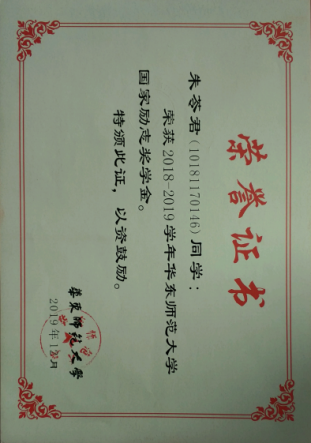 荣誉证书
朱苓君（10181170146）同学：
荣获2018-2019学年华东师范大学
国家励志奖学金。
特颁此证，以资鼓励。
华东师范大学